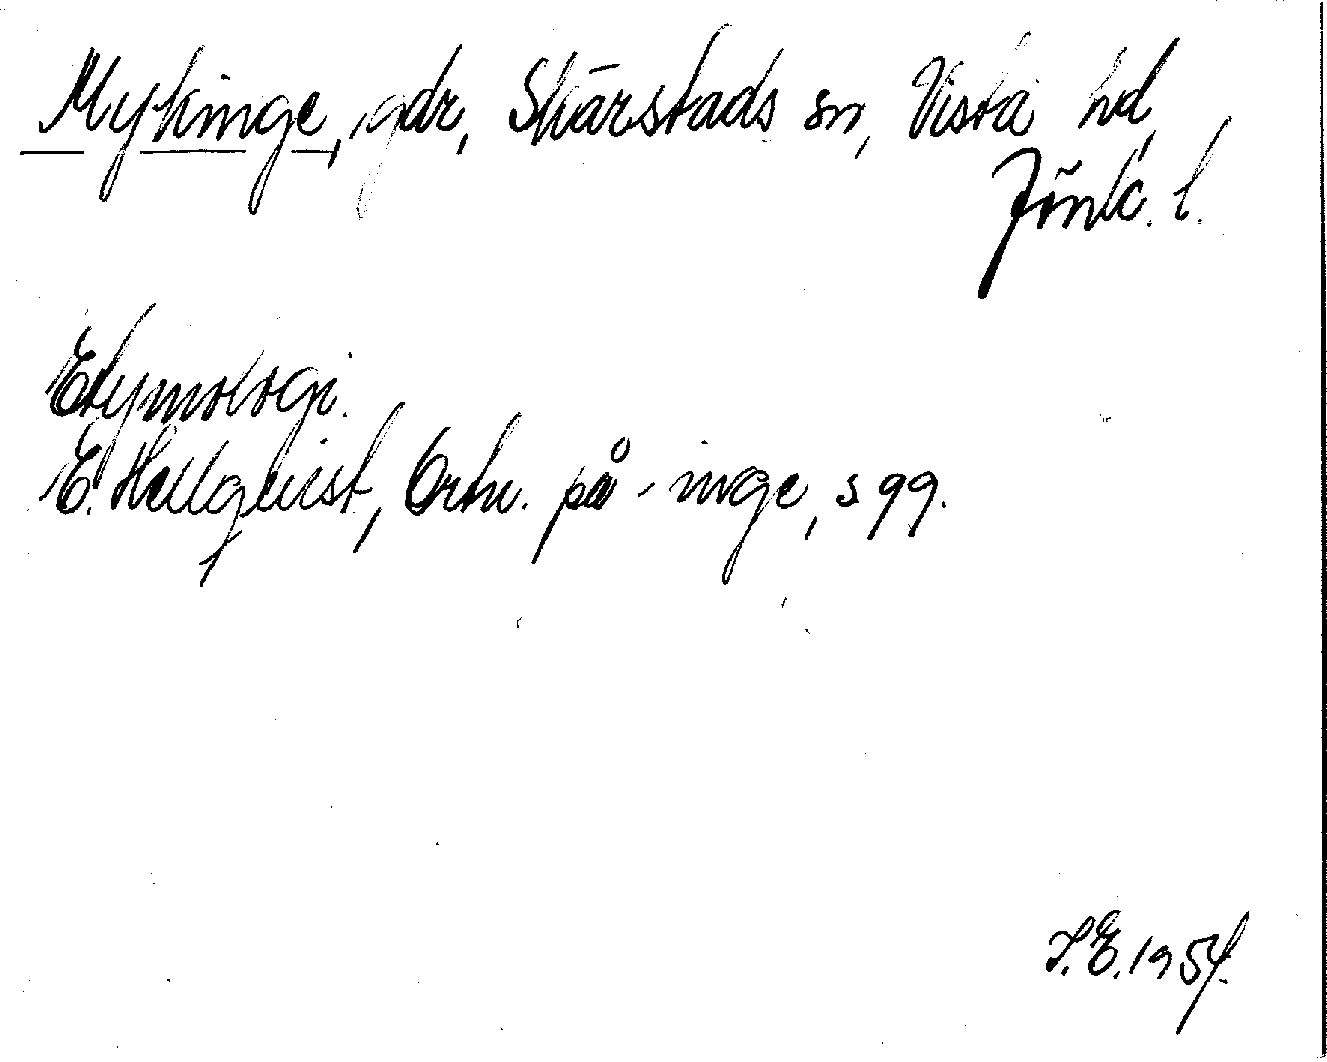 Mykinge, gdr, Skärstads sn, Vista hd,
Jönk. l.
Etymologi.
E. Hellquist, Ortn. på -inge, s 99.
I. E. 1954.